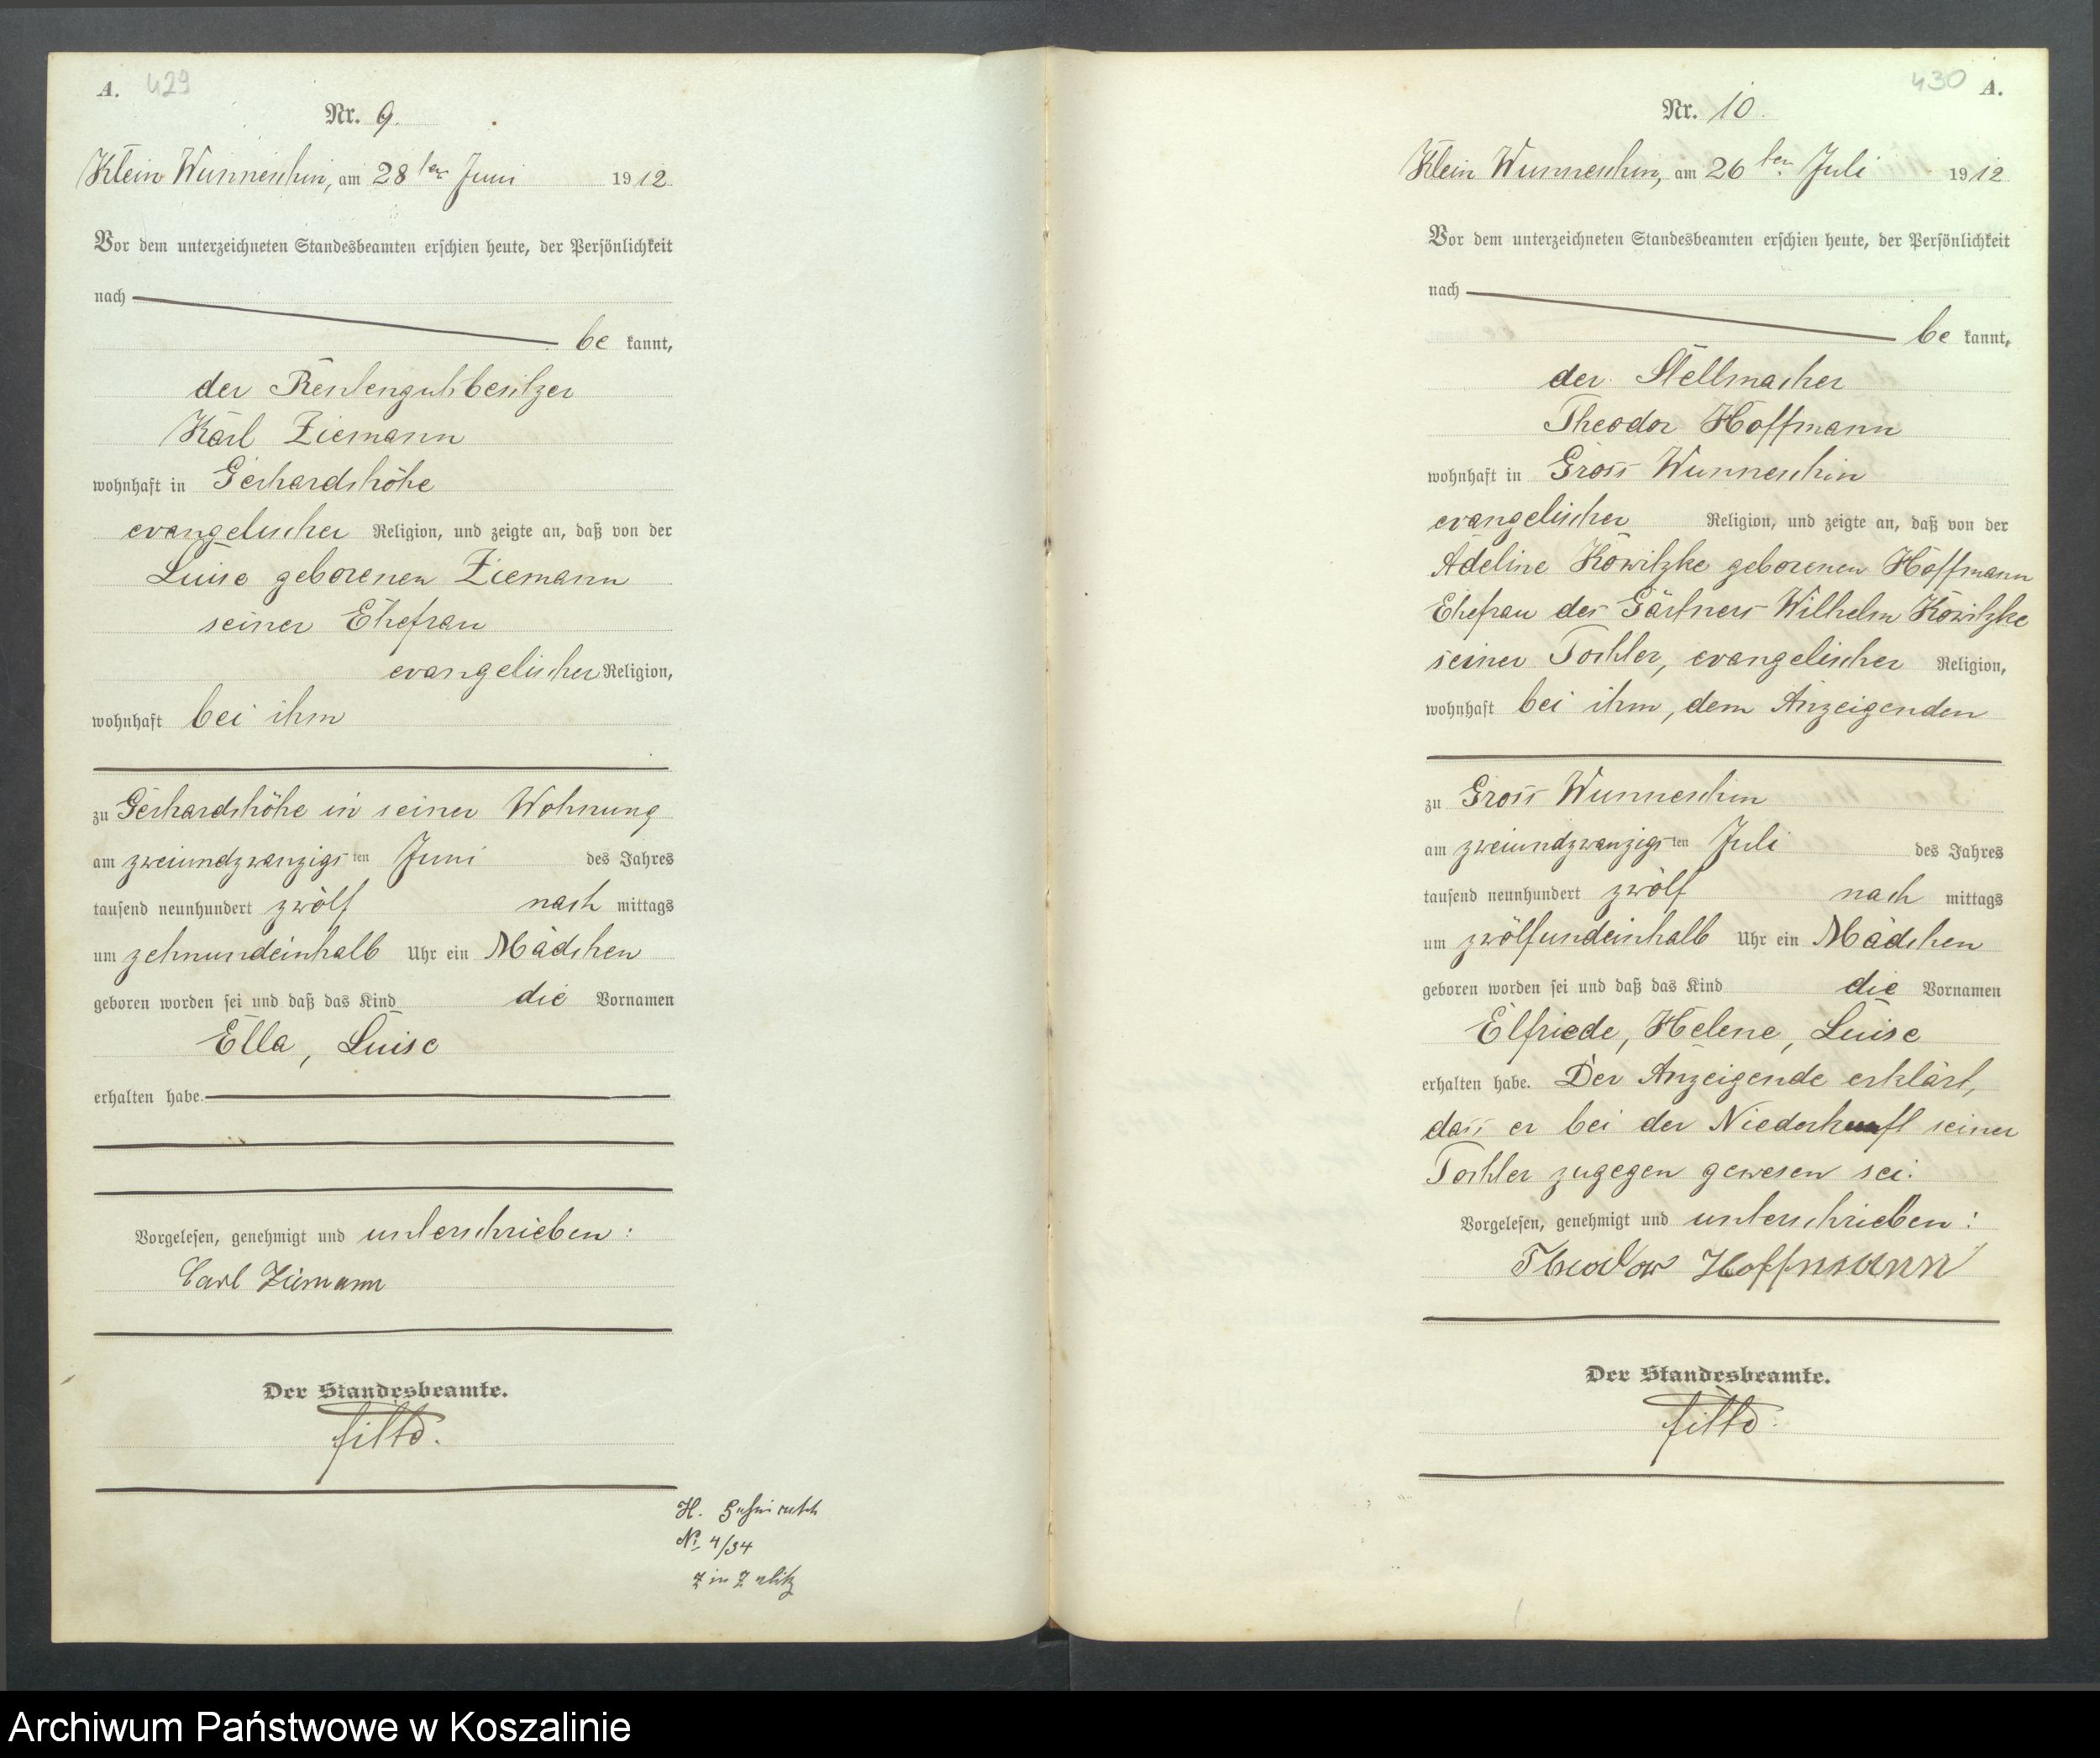 A. 429
Nr. 9.
Klein Wunneschin, am 28ten Juni 1912.
Vor dem unterzeichneten Standesbeamten erschien heute, der Persönlichkeit
nach
be kannt,
der Rentengutsbesitzer
Karl Ziemann
wohnhaft in Gerhardshöhe
evangelischer Religion, und zeigte an, daß von der
Luise geborenen Ziemann
seiner Ehefrau
evangelischer Religion,
wohnhaft bei ihm
zu Gerhardshöhe in seiner Wohnung
am zweiundzwanzigsten Juni des Jahres
tausend neunhundert zwölf nach mittags
um zehnundeinhalb Uhr ein Mädchen
geboren worden sei und daß das Kind die Vornamen
Ella, Luise
erhalten habe.
Vorgelesen, genehmigt und unterschrieben:
Carl Ziemann
Der Standesbeamte.
H.
No 4/34
in
430 A.
Nr. 10.
Klein Wunneschin, am 26ten Juli 1912
Vor dem unterzeichneten Standesbeamten erschien heute, der Persönlichkeit
nach
be kannt,
der Stellmacher
Theodor Hoffmann
wohnhaft in Gross Wunneschin
evangelischer Religion, und zeigte an, daß von der
Adeline Kowitzke geborenen Hoffmann
Ehefrau des Gärtners Wilhelm Kowitzke
seiner Tochter, evangelischer Religion,
wohnhaft bei ihm, dem Anzeigenden
zu Gross Wunneschin
am zweiundzwanzigsten Juli des Jahres
tausend neunhundert zwölf nach mittags
um zwölfundeinhalb Uhr ein Mädchen
geboren worden sei und daß das Kind die Vornamen
Elfriede, Helene, Luise
erhalten habe. Der Anzeigende erklärt,
dass er bei der Niederkunft seiner
Tochter zugegen gewesen sei.
Vorgelesen, genehmigt und unterschrieben:
Theodor Hoffmann
Der Standesbeamte.
Archiwum Państwowe w Koszalinie